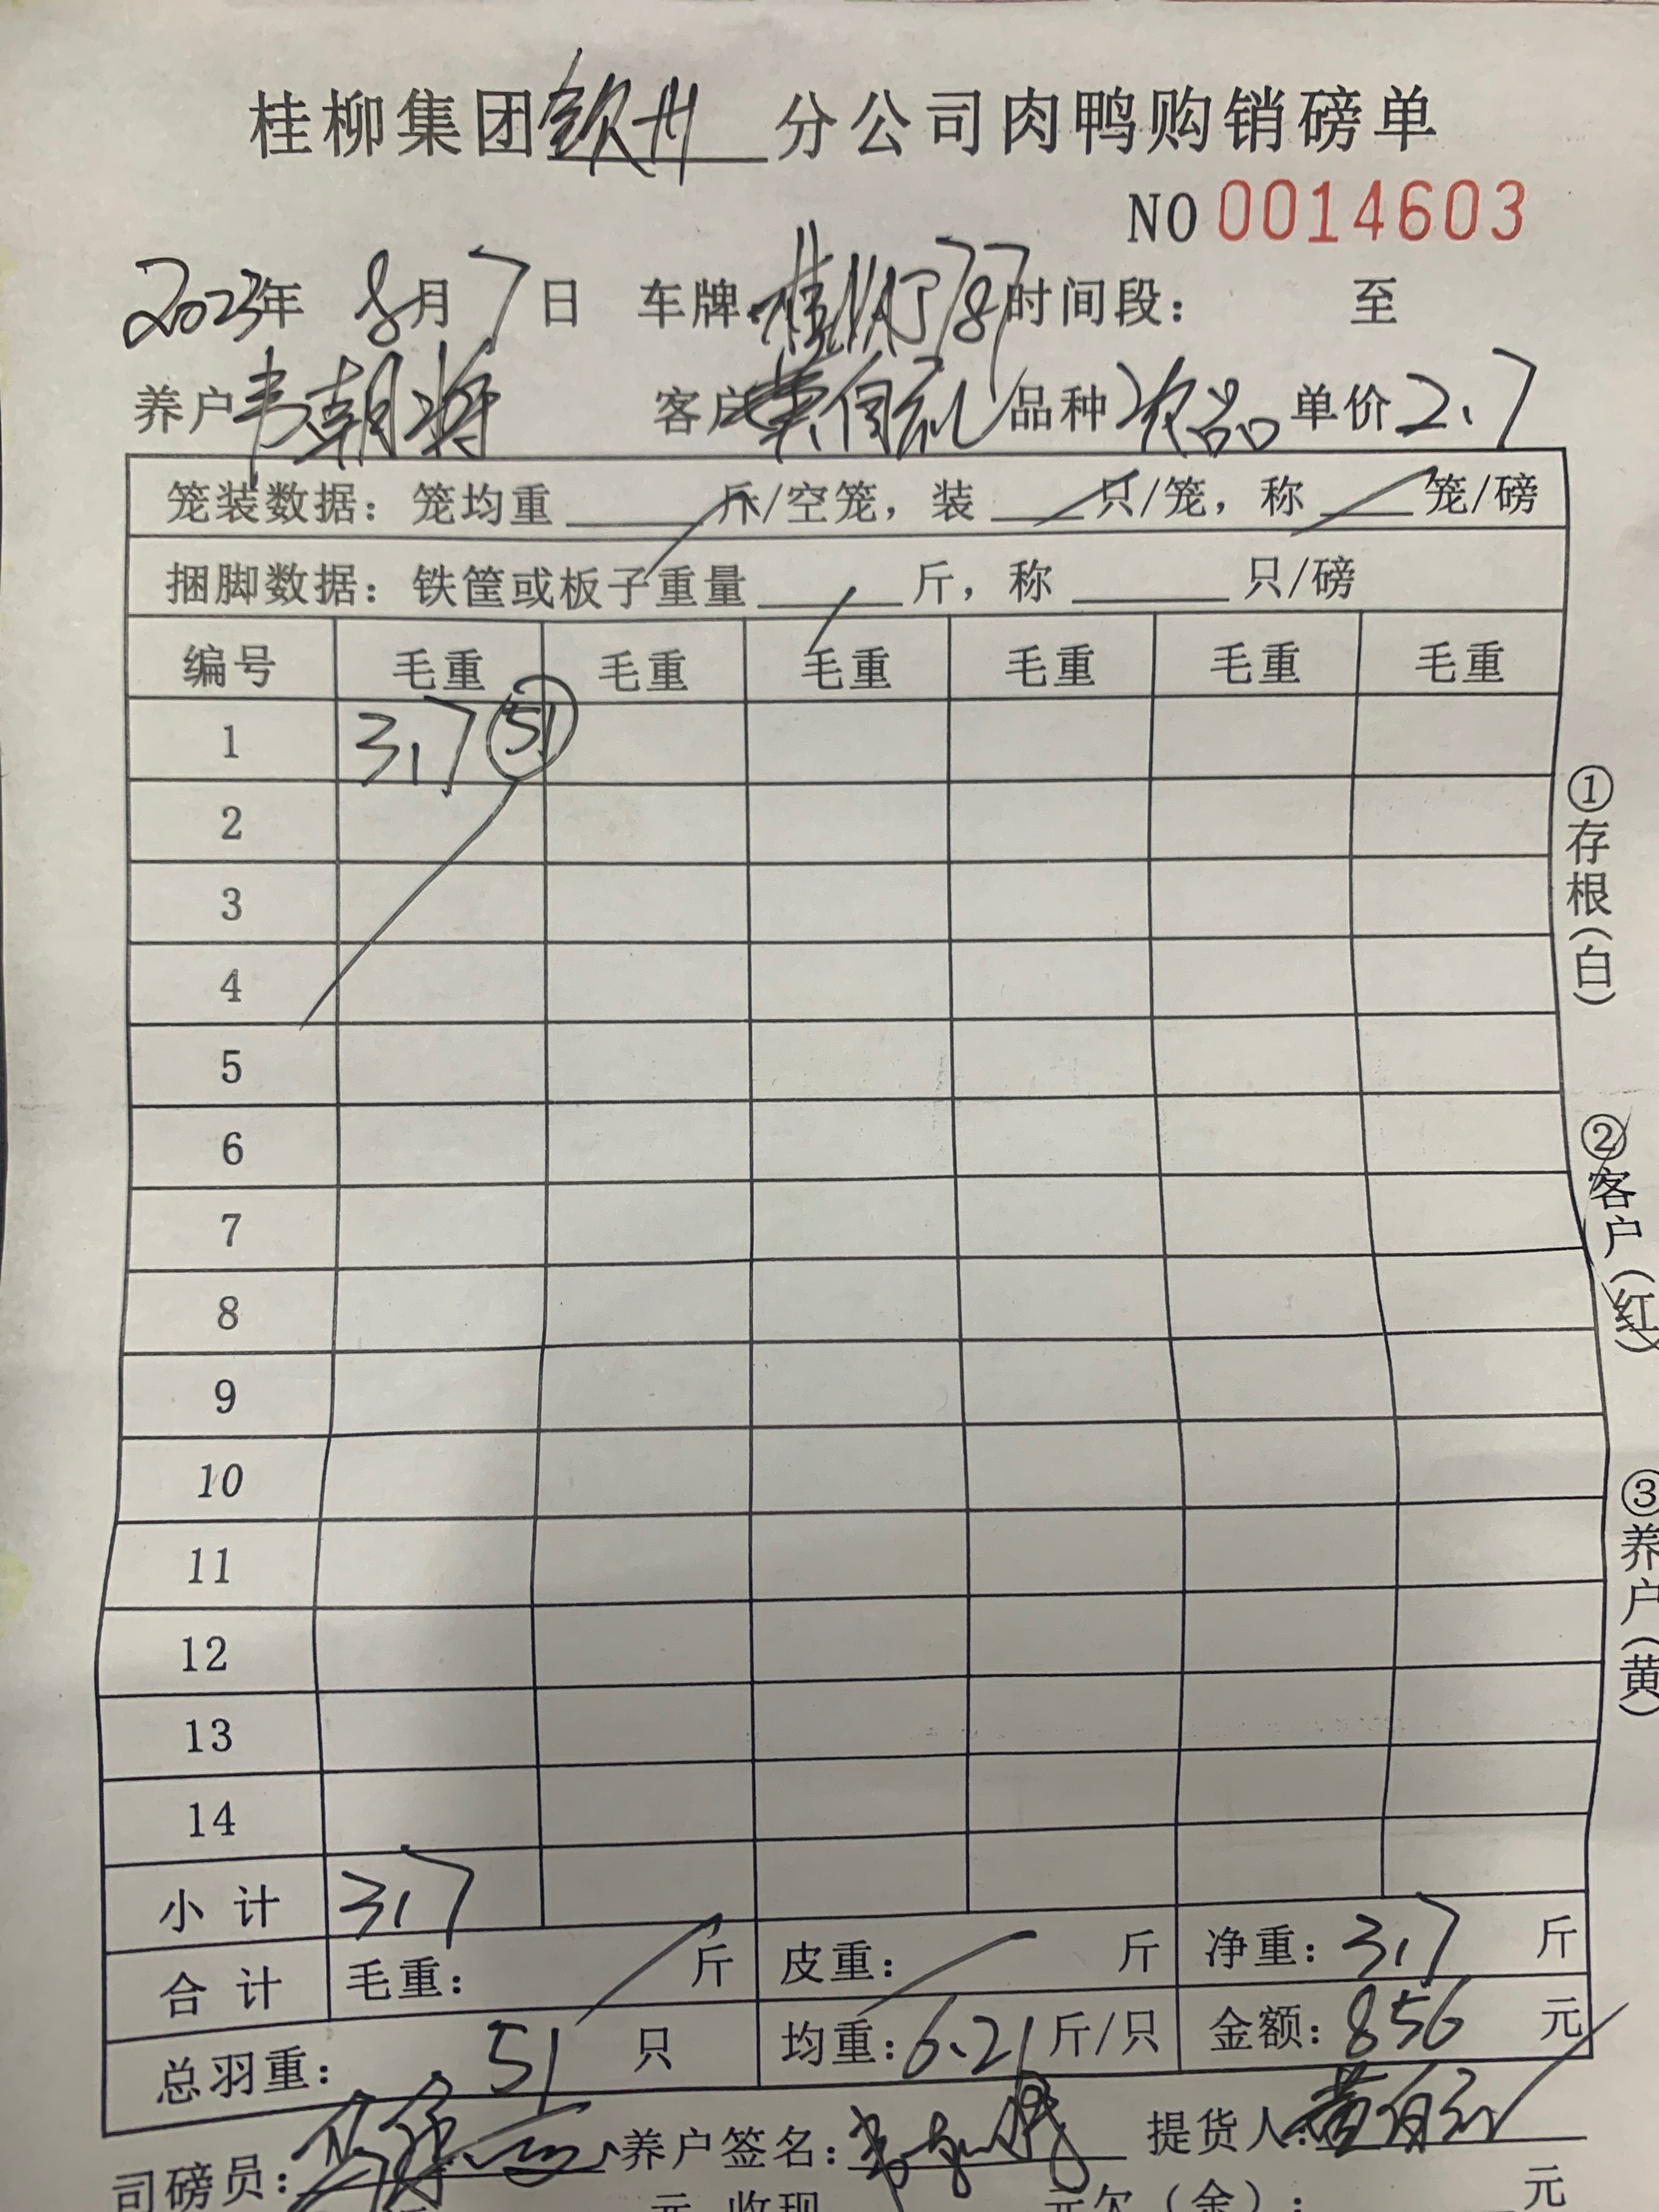 桂柳集团钦州分公司肉鸭购销磅单
NO 0014603
2023年 8月7日 车牌: 桂 787 时间段: 至
养户 韦朝将 客户 黄有礼 品种 次品 单价 2.7
笼装数据: 笼均重 斤/空笼, 装 只/笼, 称 笼/磅
捆脚数据: 铁筐或板子重量 斤, 称 只/磅
编号 毛重 毛重 毛重 毛重 毛重 毛重
1 317 51
2
3
4
5
6
7
8
9
10
11
12
13
14
小计 317
合计 毛重: 斤 皮重: 斤 净重: 317 斤
总羽重: 51 只 均重: 6.21 斤/只 金额: 856 元
司磅员: 养户签名: 提货人: 黄有礼
元 收现 元欠(金): 元
①存根(白)
②客户(红)
③养户(黄)